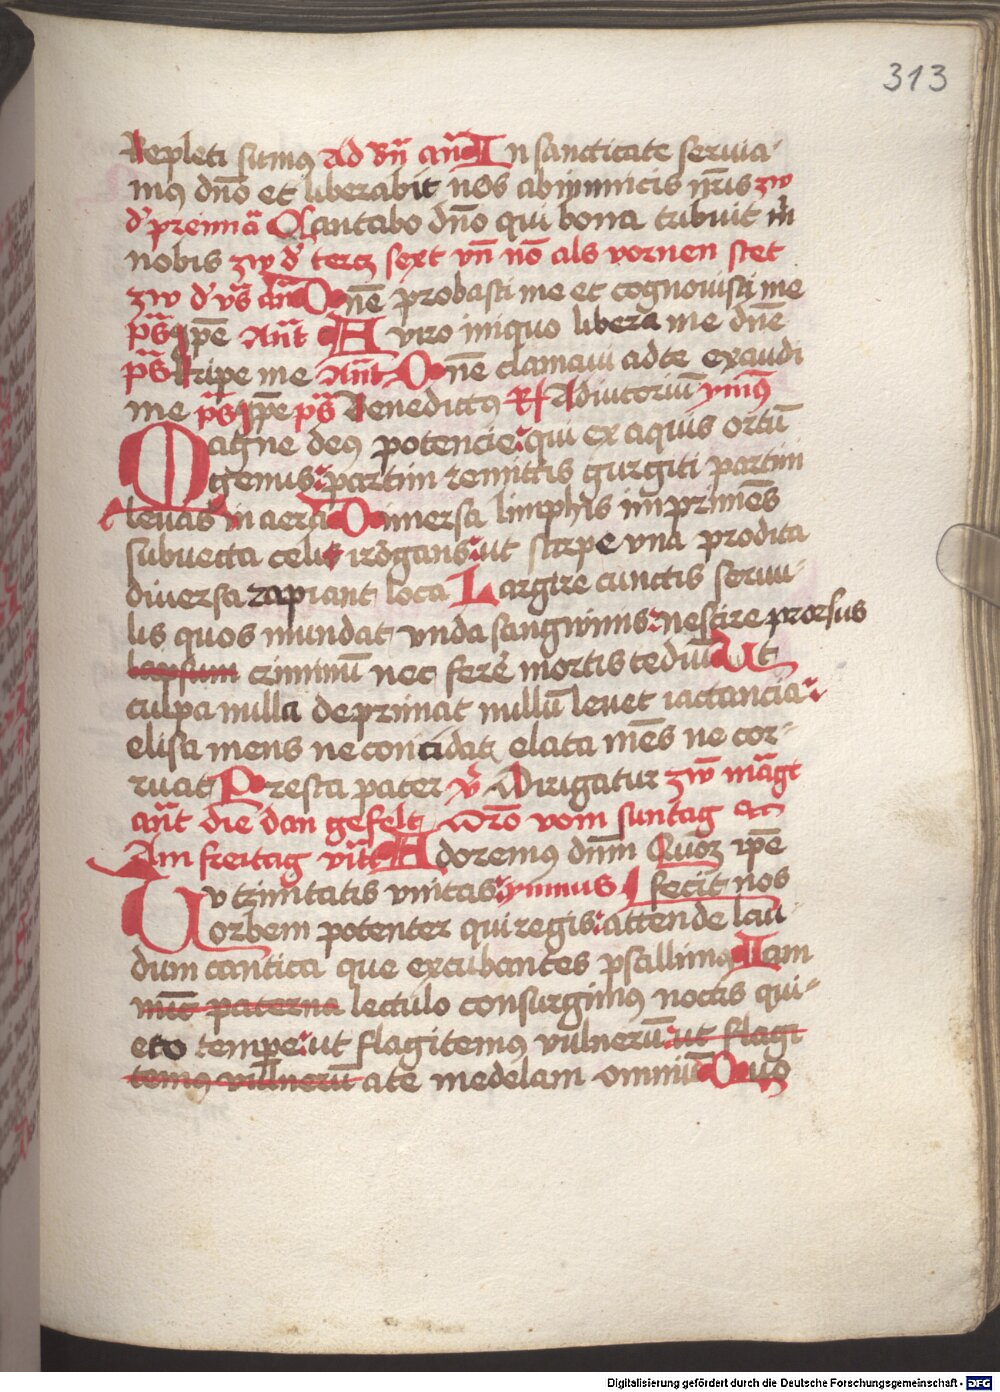 313
Repleti sumꝰ Ad bn̄ an̄ In sanctitate seruia-
mꝰ dn̄o et liberabit nos ab inimicis nr̄is zw
d' preimā Cantabo dn̄o qui bona tribuit m̄
nobis zw d' tercz sext vn̄ nō als vornen stet
zw d' vs̄ an̄ Dn̄e probasti me et cognouisti me
ps̄ ipē An̄t A viro iniquo libera me dn̄e
ps̄ Eripe me An̄t Dn̄e clamaui ad te exaudi
me ps̄ ipē ps̄ Benedictꝰ R Adiutoriū ymꝰ
Magne deꝰ potencie qui ex aquis ortū
genus partim remittis gurgiti partim
leuas in aera Dimersa limphis imprimēs
subuecta celis irogans ut stirpe vna prodita
diuersa rapiant loca Largire cunctis seruu-
lis quos mundat vnda sangwinis nescire prorsus
lapsum criminū nec ferre mortis tediū Ut
culpa nullā deprimat nullū leuet iactancia
elisa mens ne concidat elata mēs ne cor-
ruat Presta pater v̄ Dirigatur zw̄ māgt
an̄t die dan gefelt Orō vom suntag etc
Am freitag vīt Adoremꝰ dn̄m Quoz ipē
Tu trinitatis vnitas ymnus fecit nos
orbem potenter qui regis attende lau
dum cantica que excubantes psallimꝰ Nam
mic paterna lectulo consurgimꝰ noctis qui-
eto tempe ut flagitemꝰ vulnerū ut flagi
temꝰ vulnerū a te medelam omniū Quo
Digitalisierung gefördert durch die Deutsche Forschungsgemeinschaft - DFG